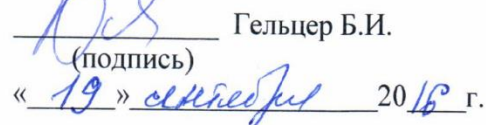 Гельцер Б.И.
(подпись)
«19» сентября 2016 г.